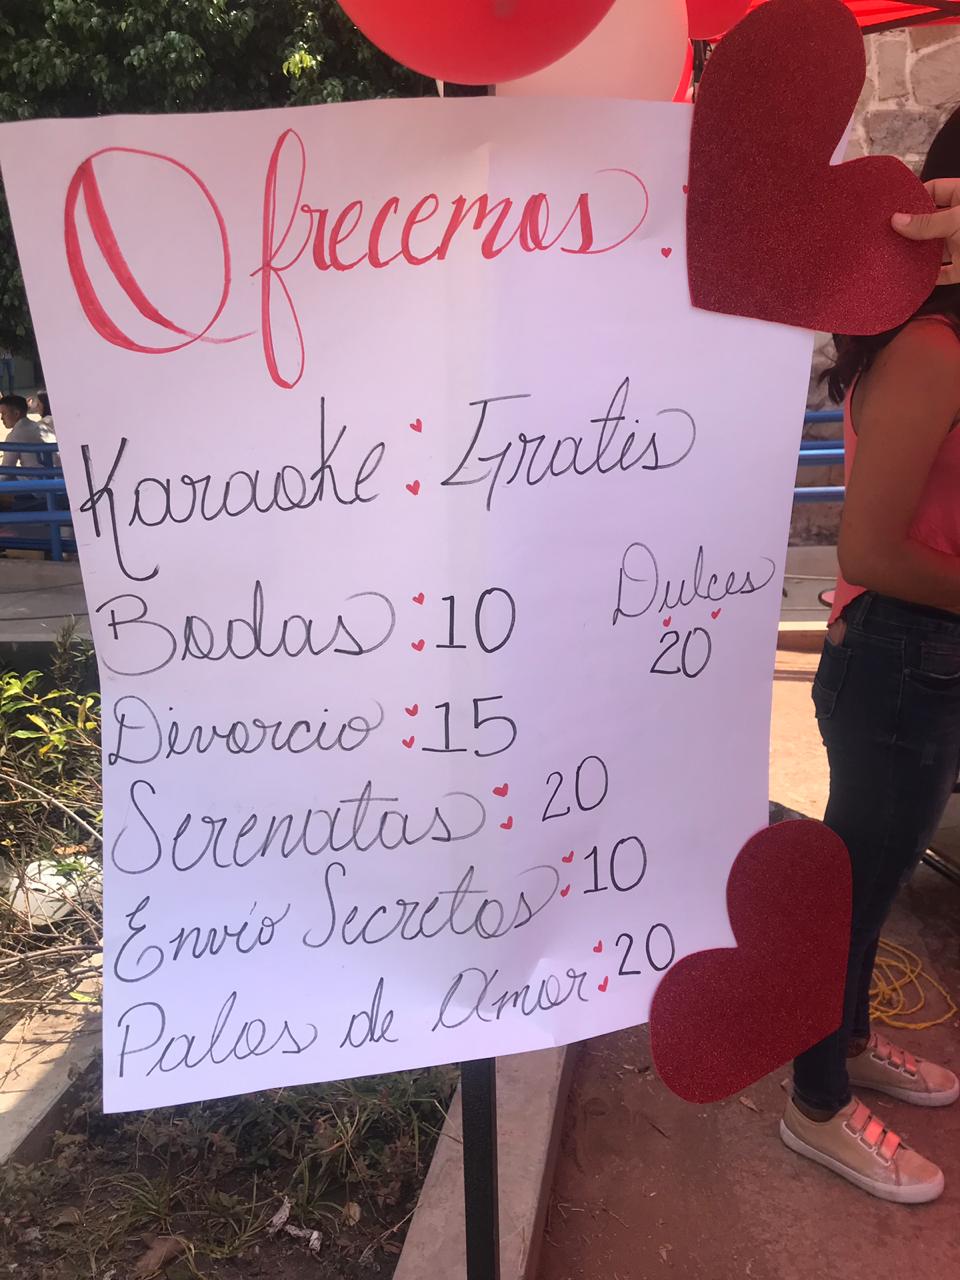 Ofrecemos.
Karaoke: Gratis
Bodas: 10
Dulces
20
Divorcio: 15
Serenatas: 20
Envío Secretos: 10
Palos de Amor: 20